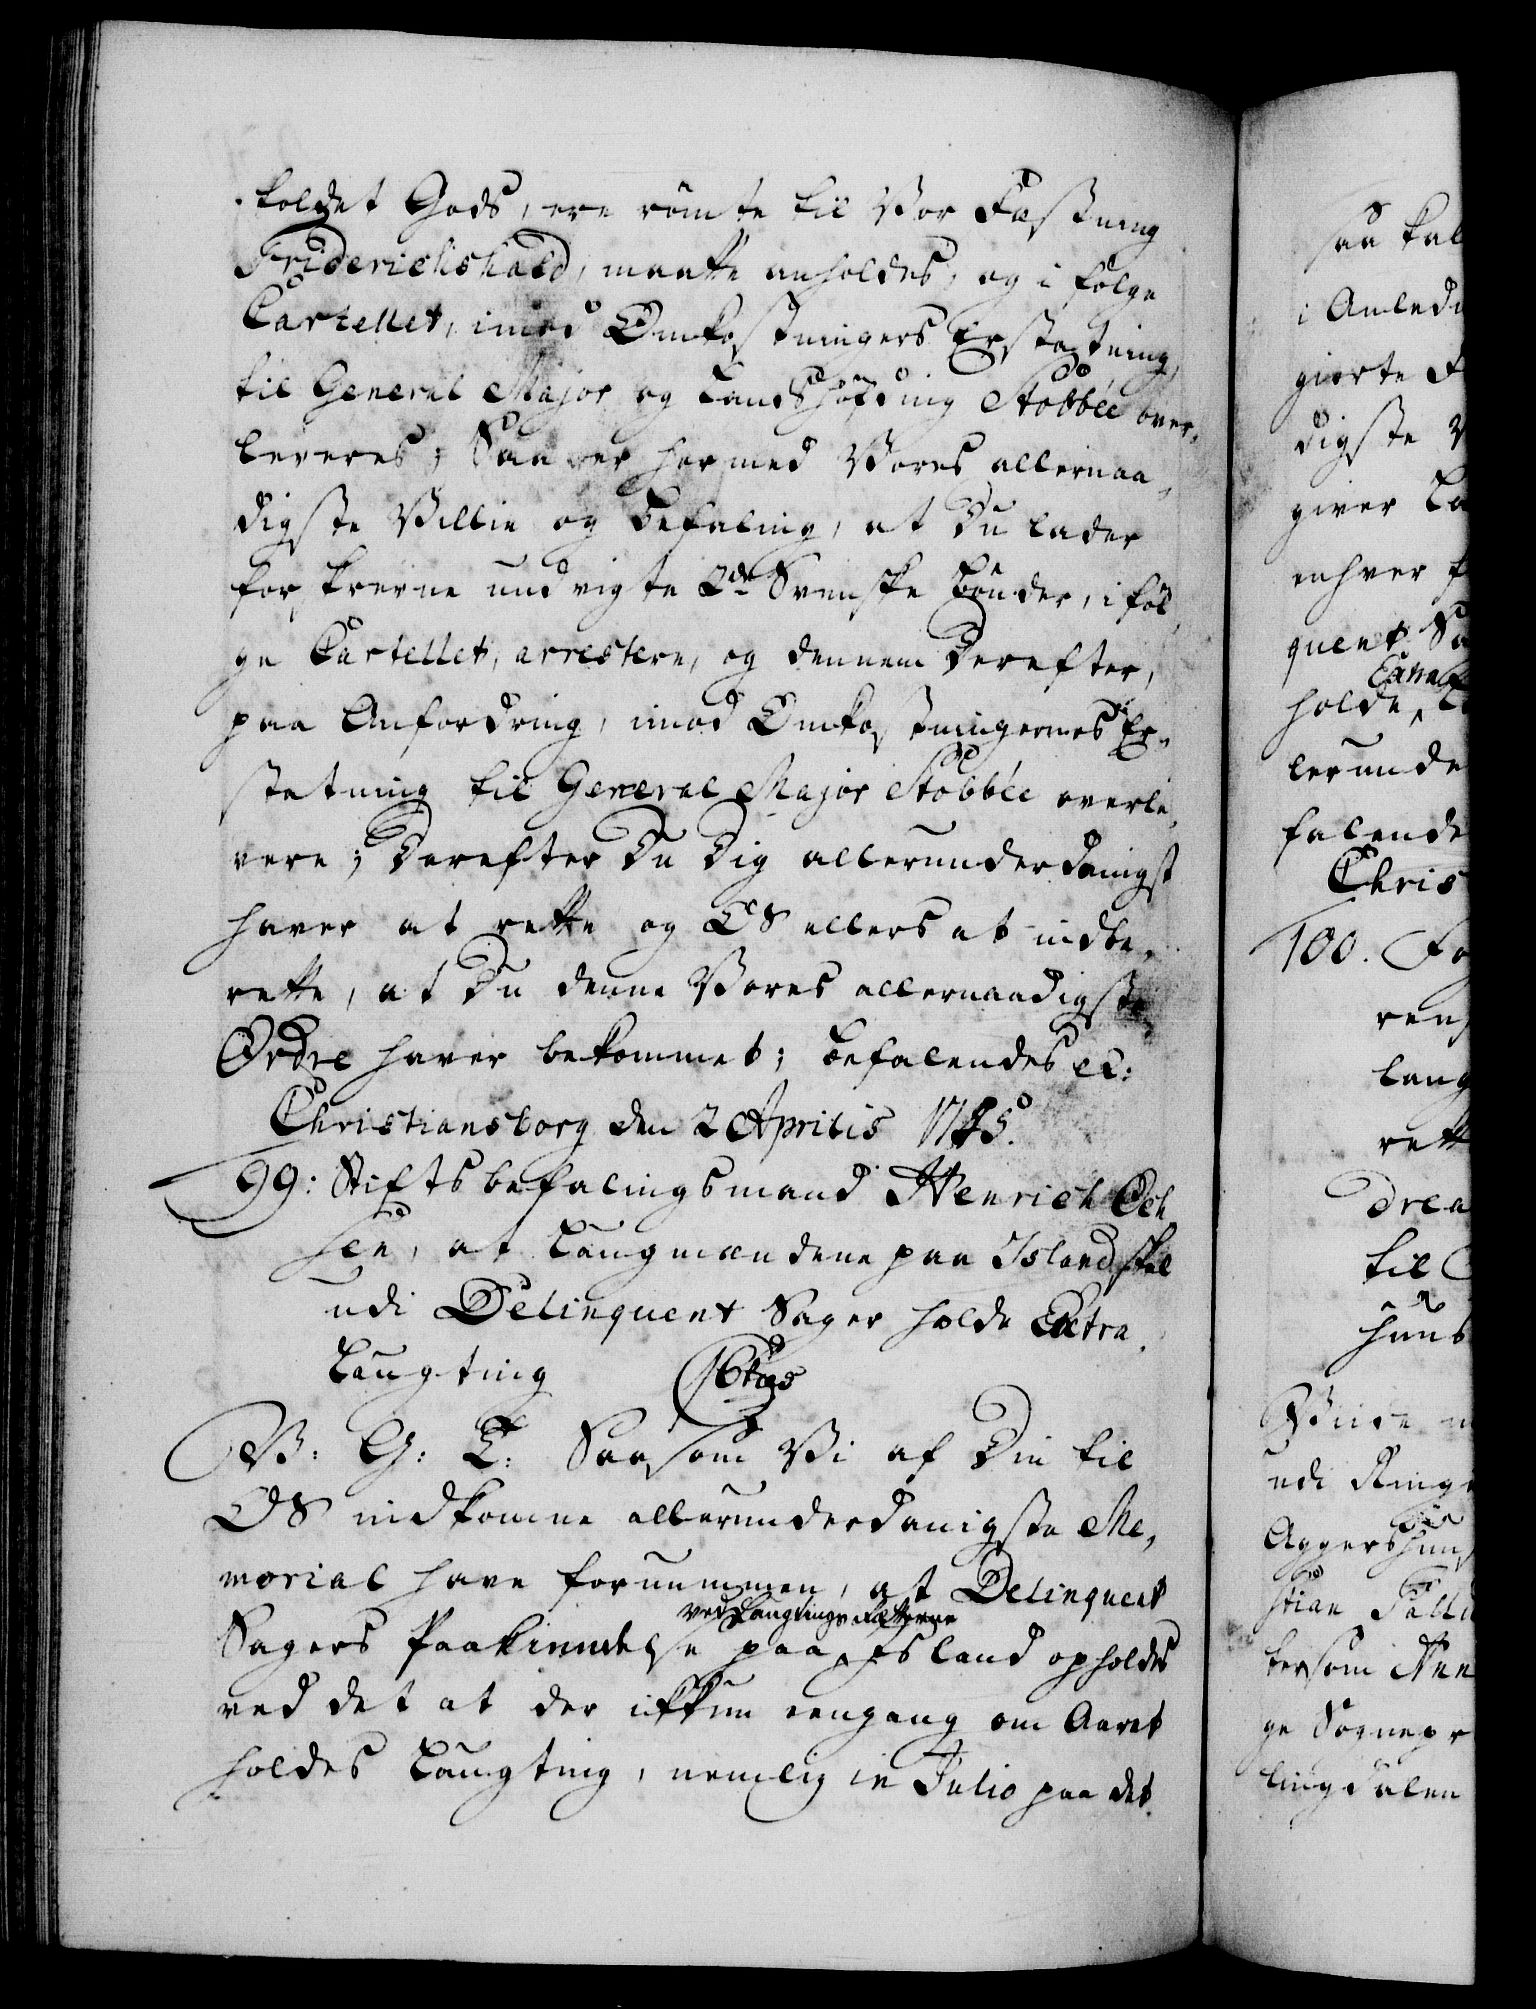 koldet Gods, ere römte til Vor Fæstning
Friderichshald, maatte anholdes, og i følge
Cartellet, imod Omkostningers Erstatning,
til General Major og Landshöfding Stobbée over-
leveres; Saa er hermed Vores allernaa-
digste Villie og Befaling, at Du lader
forskrevne undvigte 2de Svenske Bönder, i föl-
ge Cartellet, arrestere, og dennem derefter,
paa Anfordring, imod Omkostningernes Er-
statning til General Major Stobbée overle-
vere; Derefter Du Dig allerunderdanigst
haver at rette og OS ellers at indbe-
rette, at Du denne Vores allernaadigste
Ordre haver bekommet; Befalendes etc:
Christiansborg den 2 Aprilis 1745.
99: Stiftsbefalingsmand Henrich Och
sen, at Laugmændene paa Island skal
udi Delinquent Sager holde Extra
Laugting
V: G: T: Saasom Vi af Din til
OS indkomne allerunderdanigste Me-
morial have fornummen, at Delinquent
ved Laugtings Rætterne
Sagers Paakiendelse paa Island opholdes
ved det at der ikkun eengang om Aaret
holdes Laugting, nemlig in Julio paa det
saa kal
i Anledn
giorte F
digste V
giver La
enhver f
quent Sa
Extra
holde, L
lerunde
falende
Chris
100. Fo
ren
lang
rett
drea
til
huus
Viide
udi Ring
Aggershuus
stian Fall
tersom Hen
ge Sognepr
lingdalen